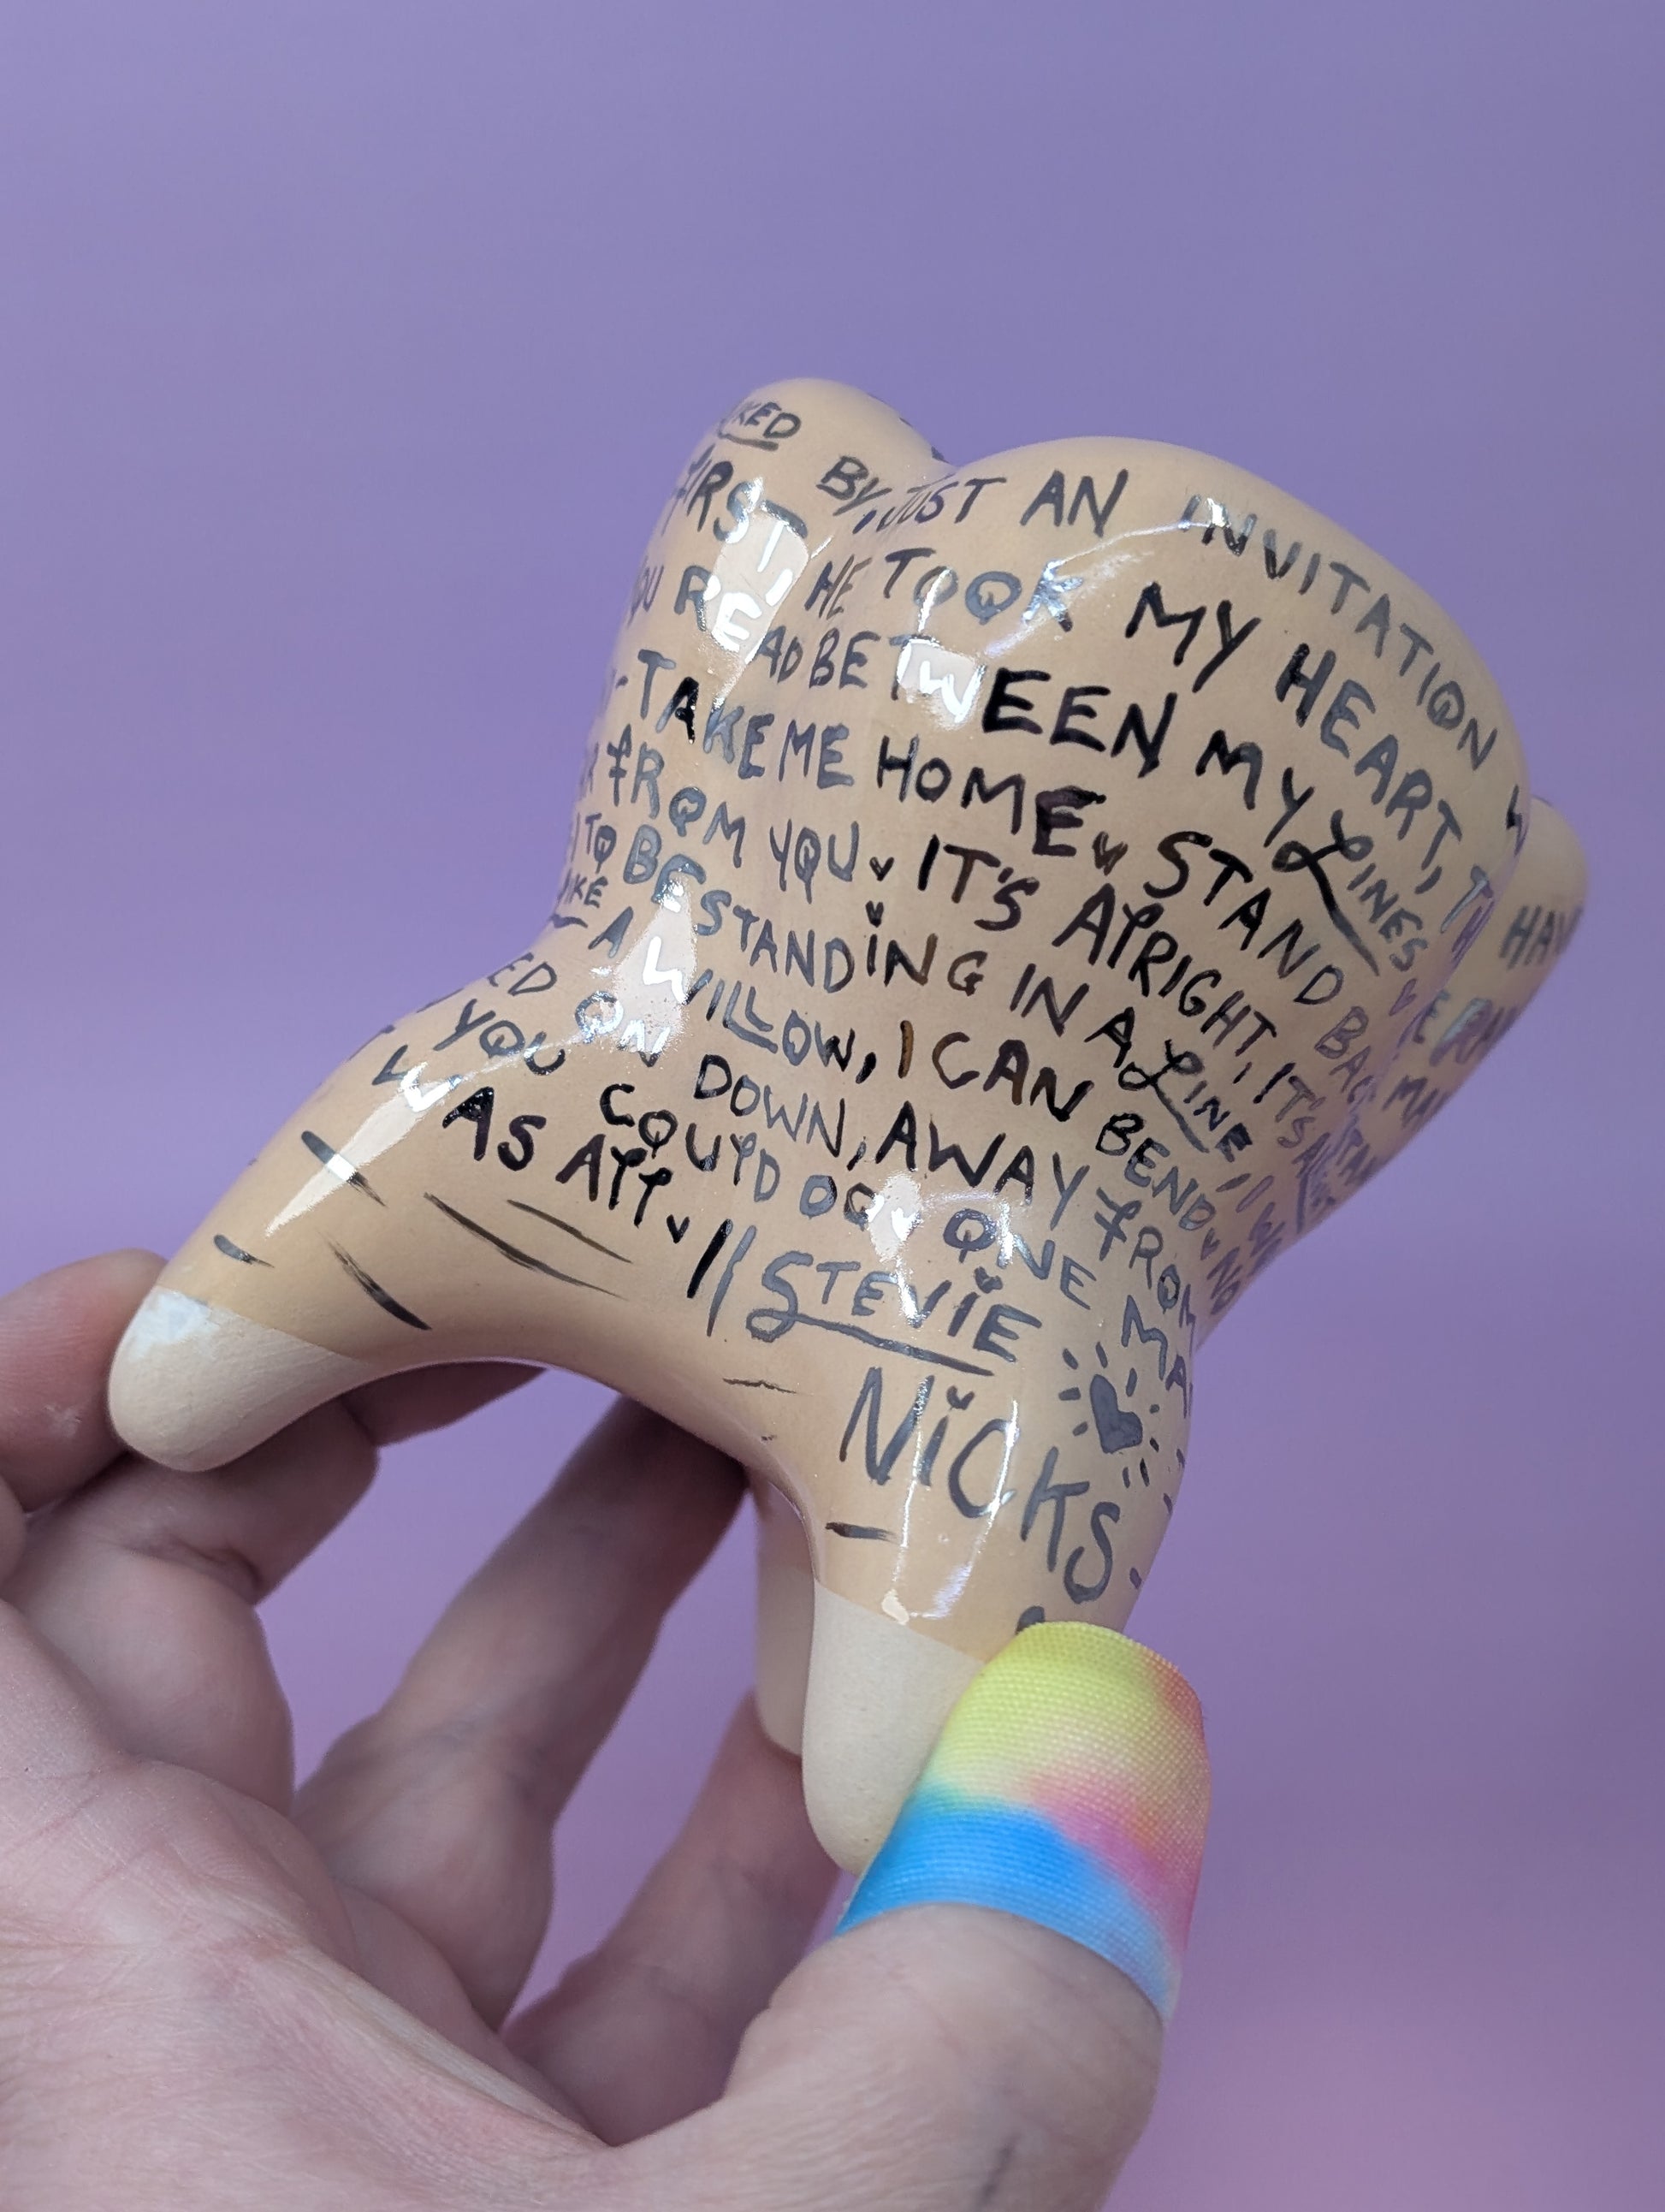 BY, JUST AN INVITATION
FIRST, HE TOOK MY HEART,
READ BETWEEN MY LINES
-TAKE ME HOME STAND BACK
FROM YOU IT'S ALRIGHT, IT'S
TO BE STANDING IN A LINE, I
LIKE A WILLOW, I CAN BEND NO
ED ON DOWN, AWAY FROM
YOU COULD DO ONE MA
AS ALL
STEVIE
NICKS
HAV
MAN